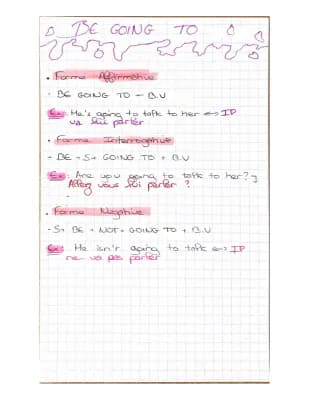 BE GOING TO
• Forme Affirmative
- BE GOING TO - B.V
Ex: He's going to talk to her ⇔ Il
va lui parler
• Forme Interrogative
- BE + S + GOING TO + B.V
Ex: Are you going to talk to her?
Allez vous lui parler ?
• Forme Négative
- S + BE + NOT + GOING TO + B.V
Ex: He isn't going to talk ⇔ Il
ne va pas parler